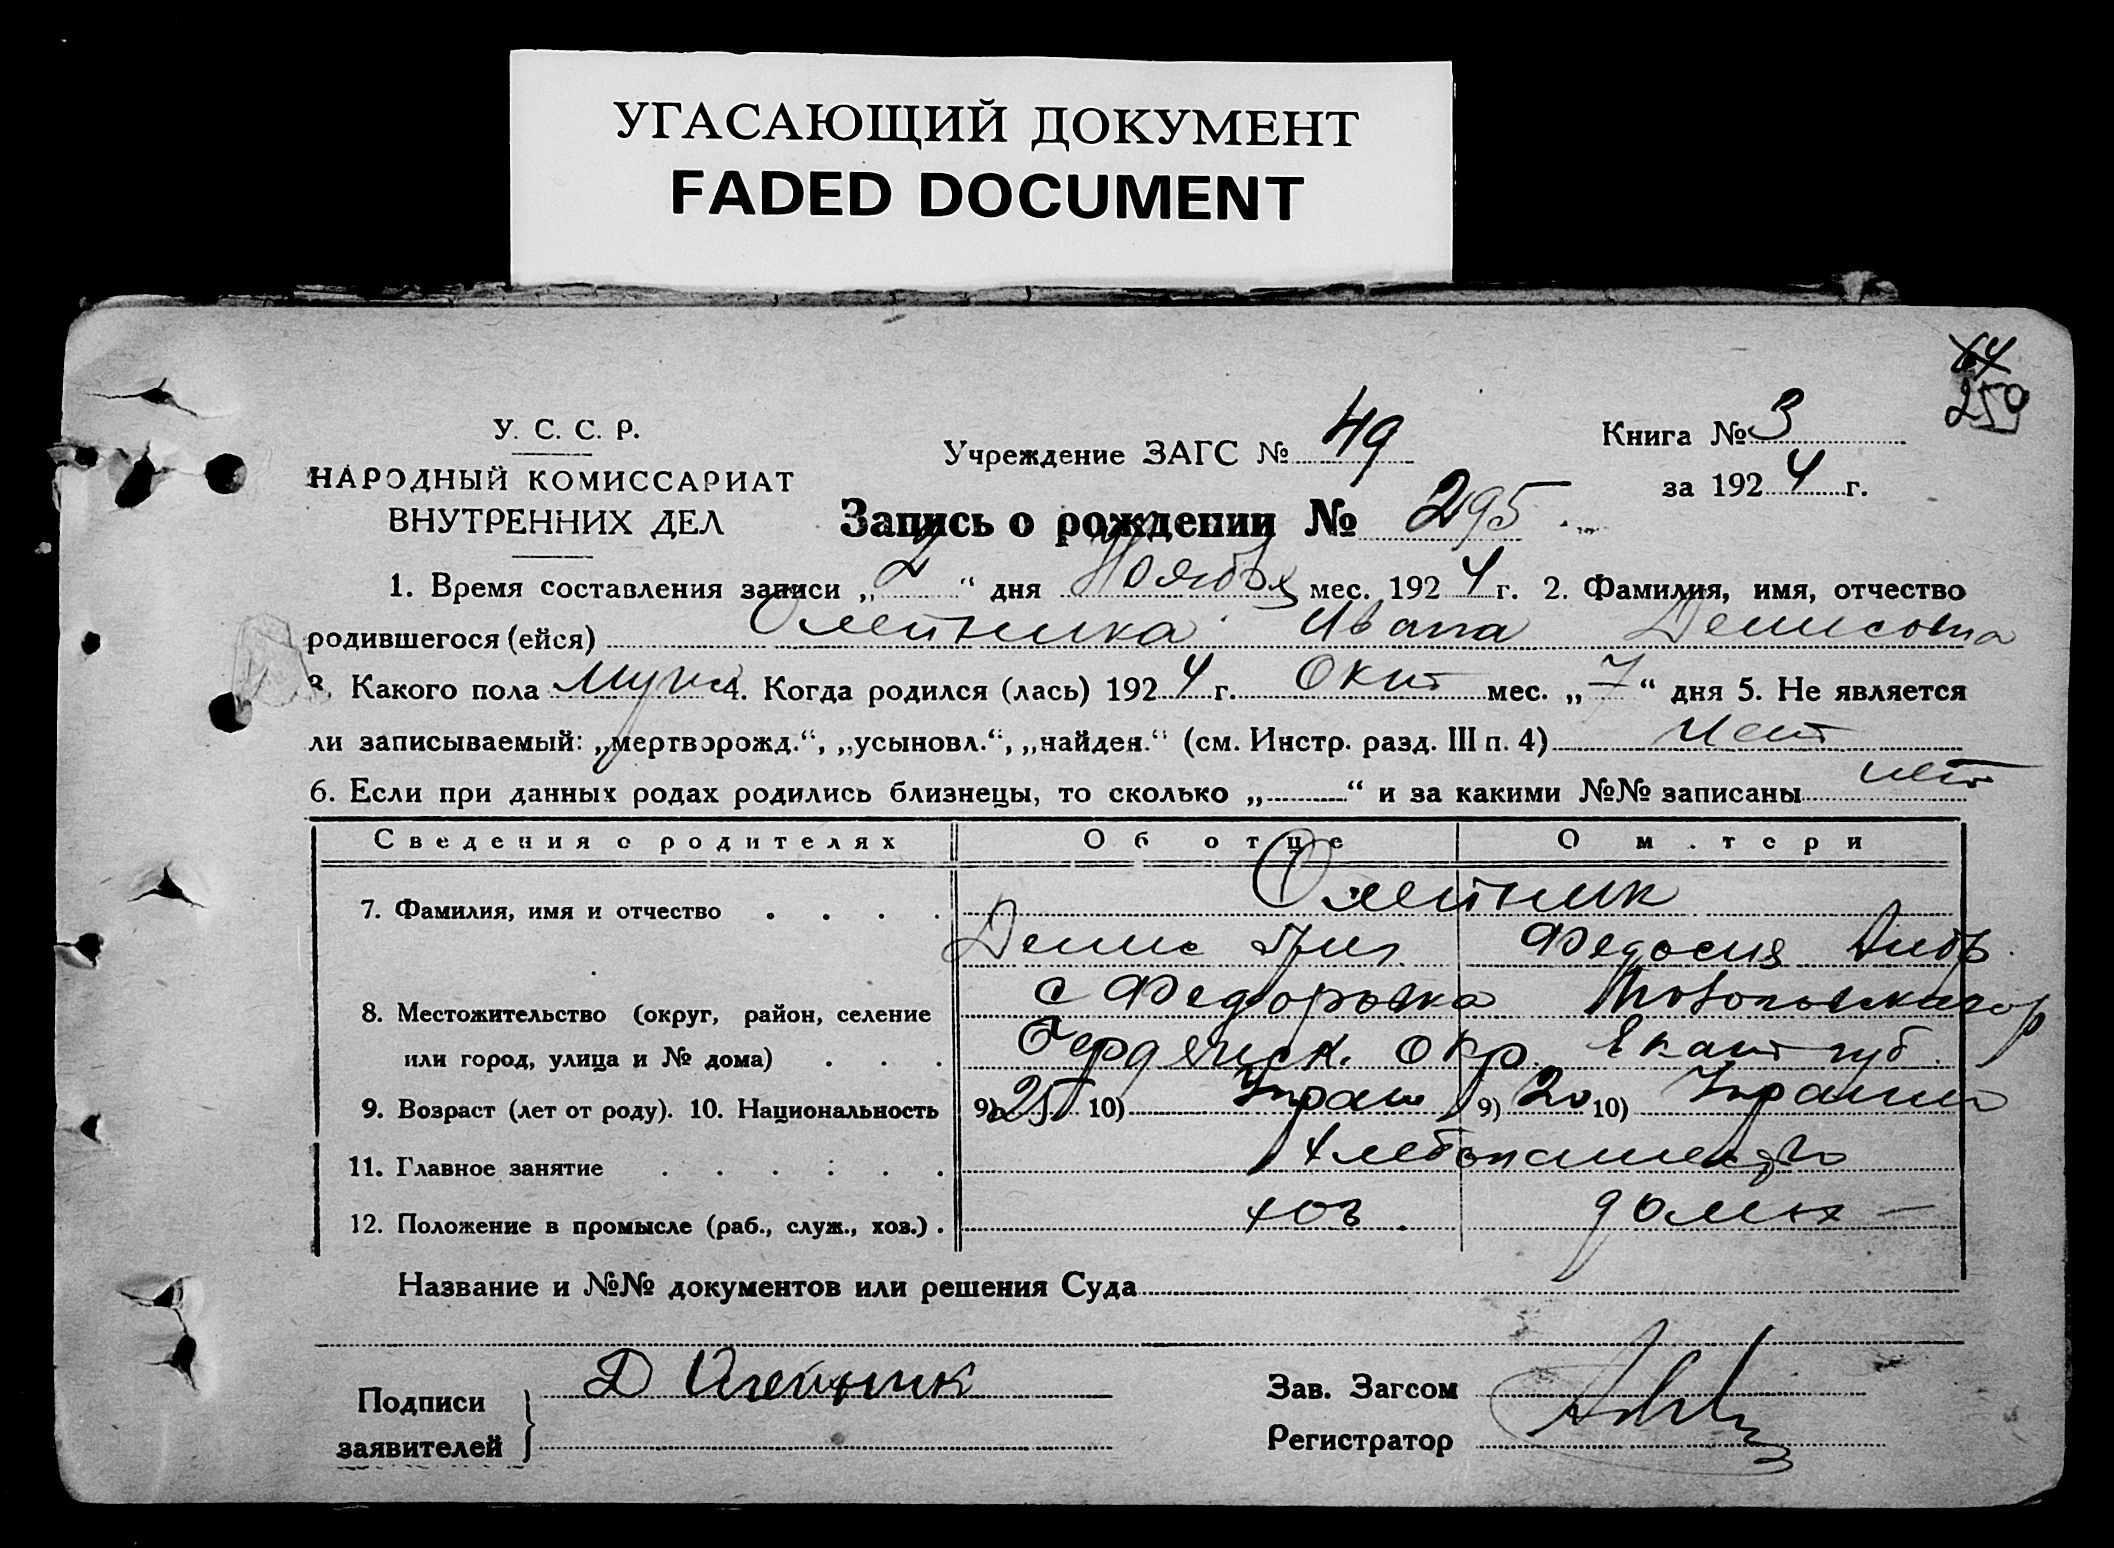 УГАСАЮЩИЙ ДОКУМЕНТ
FADED DOCUMENT
64
259
У. С. С. Р.
НАРОДНЫЙ КОМИССАРИАТ
ВНУТРЕННИХ ДЕЛ
Учреждение ЗАГС № 49
Книга № 3
за 1924 г.
Запись о рождении № 295
1. Время составления записи „2“ дня Ноября мес. 1924 г. 2. Фамилия, имя, отчество
родившегося (ейся) Олейника Ивана Денисовича
3. Какого пола муж 4. Когда родился (лась) 1924 г. Окт мес. „7“ дня 5. Не является
ли записываемый: „мертворожд.“, „усыновл.“, „найден.“ (см. Инстр. разд. III п. 4) Нет
6. Если при данных родах родились близнецы, то сколько „ “ и за какими №№ записаны нет
Сведения о родителях Об отце О матери
7. Фамилия, имя и отчество Олейник
Денис Григ Федосия
8. Местожительство (округ, район, селение с Федоровка
или город, улица и № дома) Бердянск. окр. Екат губ.
9. Возраст (лет от роду). 10. Национальность 9) 25 10) Краин 9) 20 10) Украин
11. Главное занятие Хлебопашество
12. Положение в промысле (раб., служ., хоз.) хоз. домох
Название и №№ документов или решения Суда
Подписи заявителей Д Олейник
Зав. Загсом
Регистратор